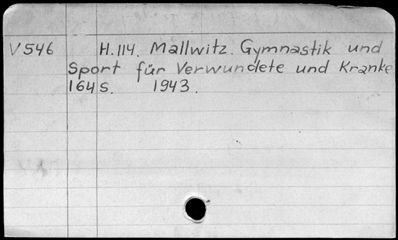 V546 H.114. Mallwitz. Gymnastik und
Sport für Verwundete und Kranke
164 S. 1943.